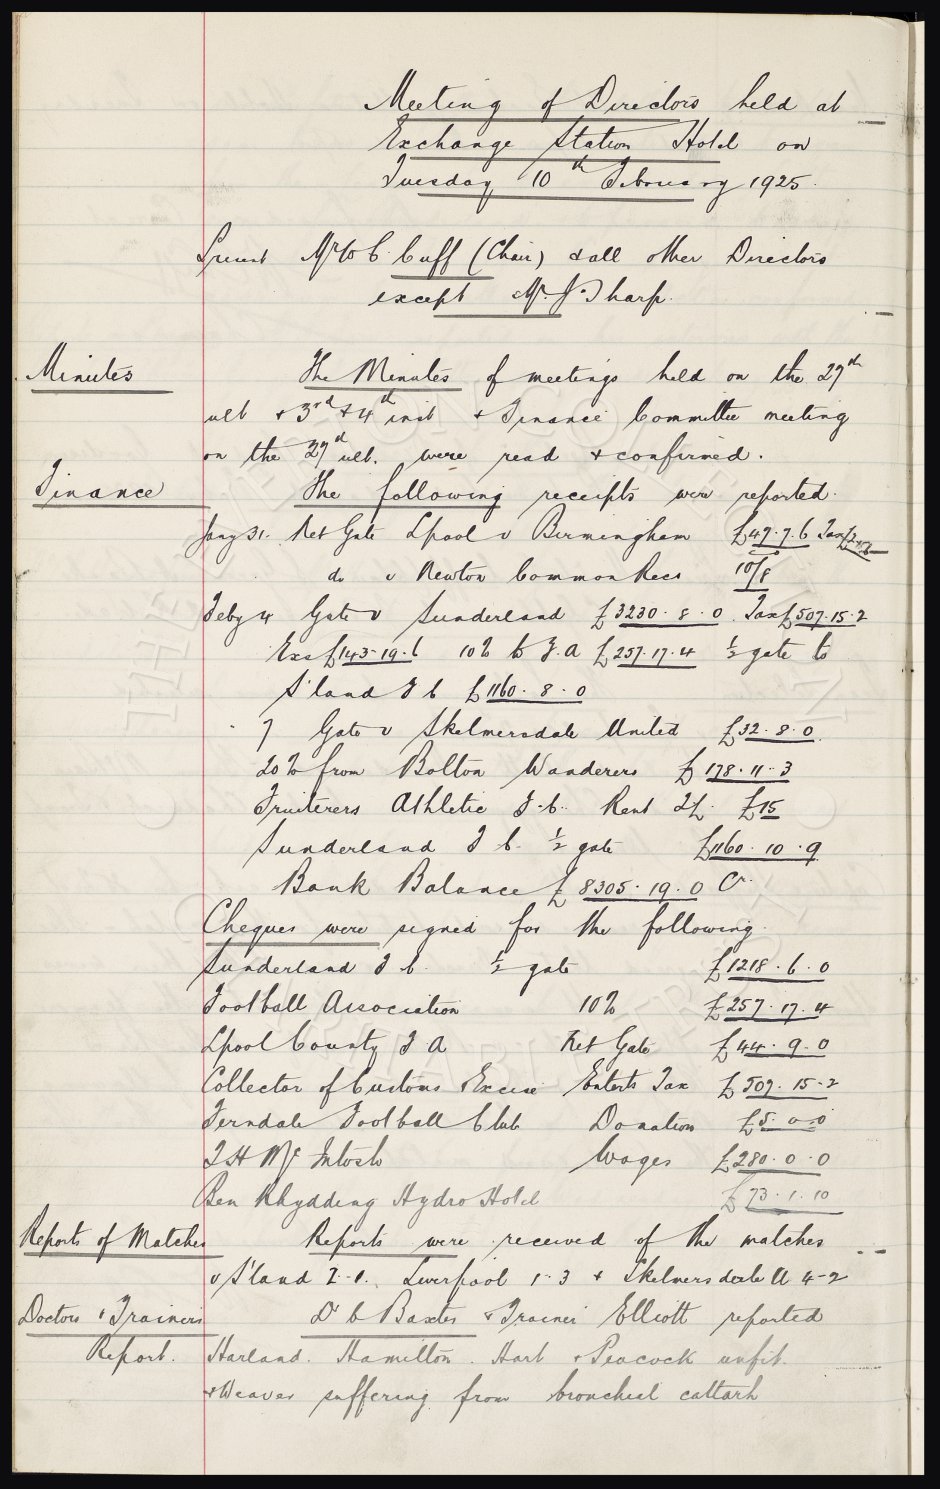 Meeting of Directors held at
Exchange Station Hotel on
Tuesday 10th February 1925.
Present Mr W C Cuff (Chair) & all other Directors
except Mr. J. Sharp.
Minutes The Minutes of meetings held on the 27th
ult & 3rd & 4th inst & Finance Committee meeting
on the 27th ult. were read & confirmed.
Finance The following receipts were reported.
Jany 31. Net Gate Lpool v Birmingham £47.7.6 Tax
do v Newton Common Recs 10/8
Feby 4 Gate v Sunderland £3230.8.0. Tax £507.15.2
Exs £143.19.6 10% to F.A £257.17.4 ½ gate to
S'land F C £1160.8.0
7 Gate v Skelmersdale United £32.8.0.
20% from Bolton Wanderers £178.11.3
Fruiterers Athletic F.C. Rent £15
Sunderland F C. ½ gate £1160.10.9
Bank Balance £8305.19.0 Cr.
Cheques were signed for the following.
Sunderland F C. ½ gate £1218.6.0
Football Association 10% £257.17.4
Lpool County F A Net Gate £44.9.0
Collector of Customs & Excise Enterts Tax £509.15.2
Ferndale Football Club Donation £5.0.0
T H Mc Intosh Wages £280.0.0
Ben Rhydding Hydro Hotel £73.1.10
Reports of Matches Reports were received of the matches
v S'land 2-1. Liverpool 1-3 & Skelmersdale U 4-2
Doctors & Trainers Dr C Baxter & Trainer Elliott reported
Report. Harland. Hamilton. Hart & Peacock unfit.
& Weaver suffering from bronchial cattarh